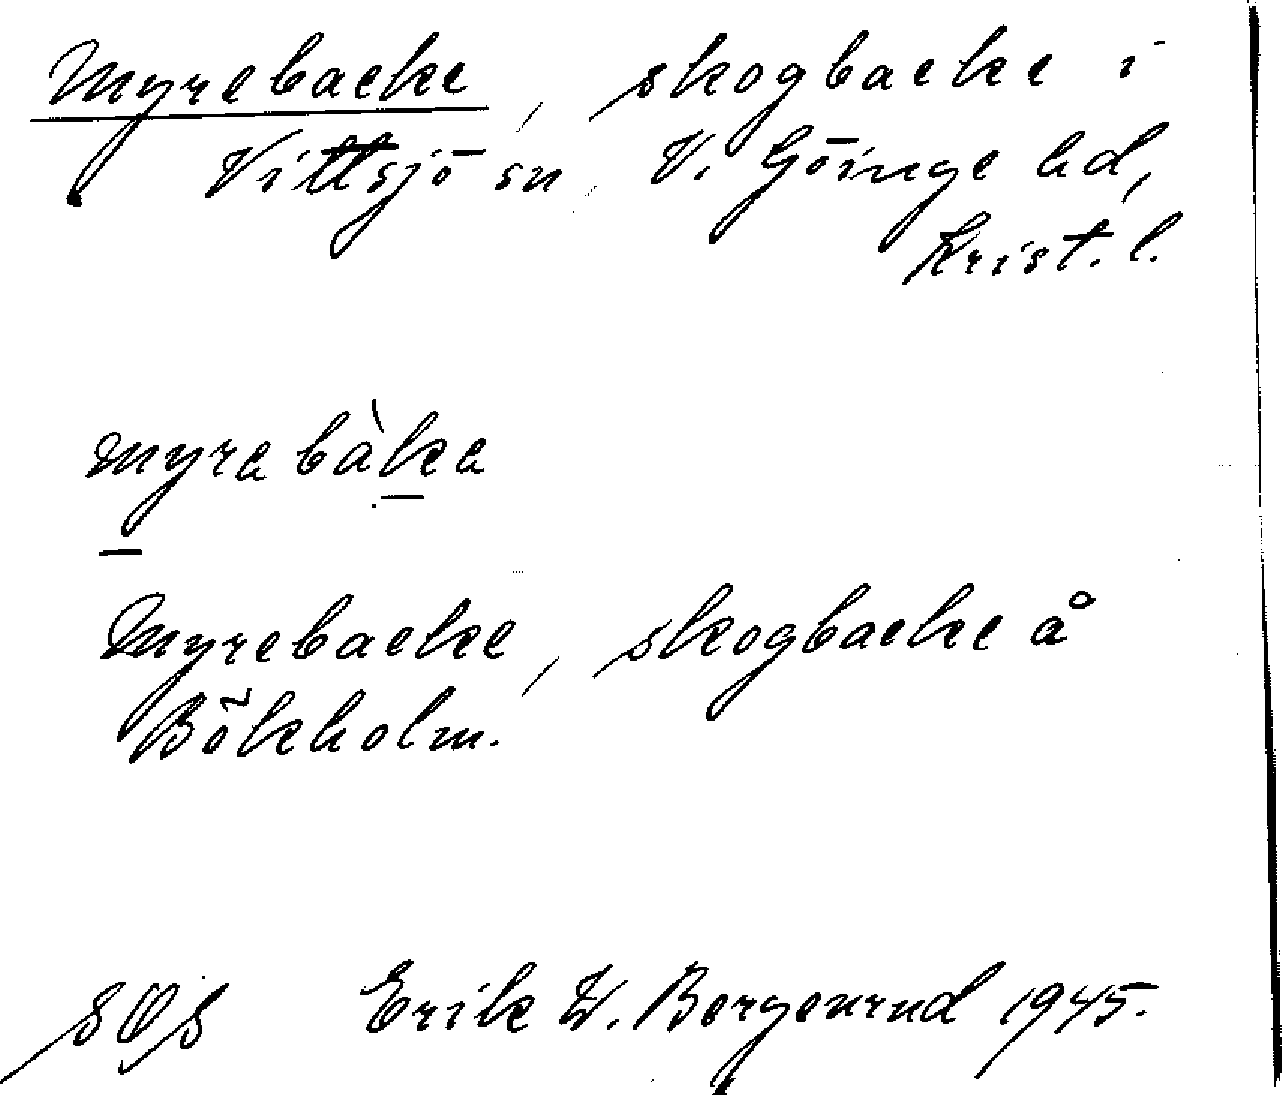 Myrebacke, skogbacke i
Vittsjö sn, V. Göinge hd,
Krist. l.
myrabàka
Myrebacke, skogbacke å
Bökholm.
Erik W. 1945.